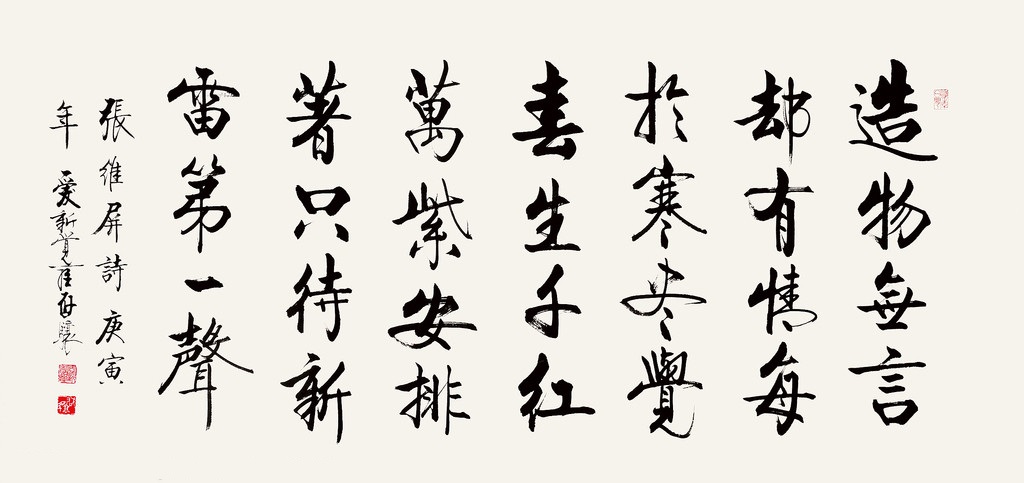 造物無言
却有情每
於寒尽覺
春生千红
萬紫安排
著只待新
雷第一聲
張維屏詩 庚寅
年 爱新覚羅